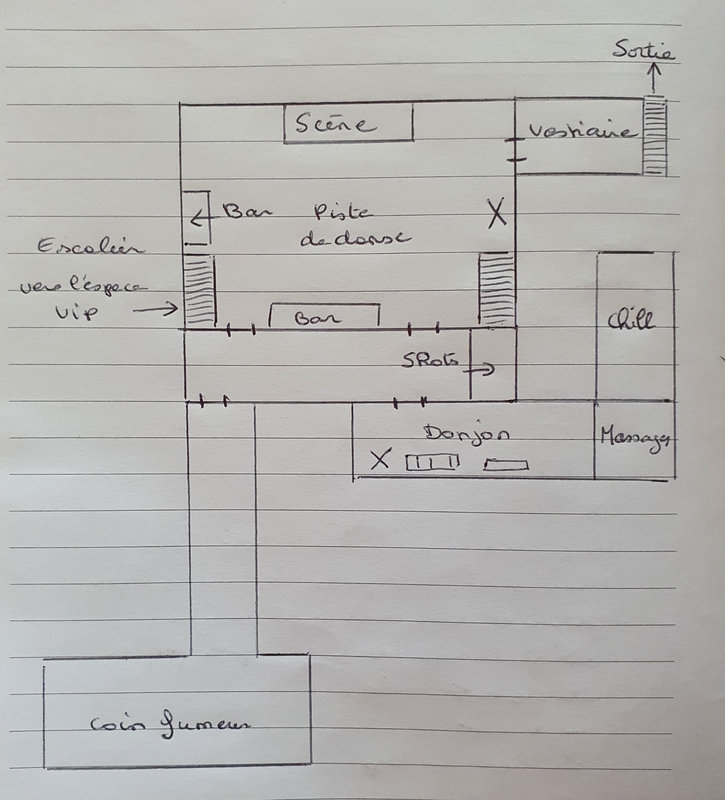 Sortie
Scène
Vestiaire
Bar
Piste
de danse
X
Escalier
vers l'espace
VIP
Bar
Chill
Donjon
Massages
X
coin fumeur